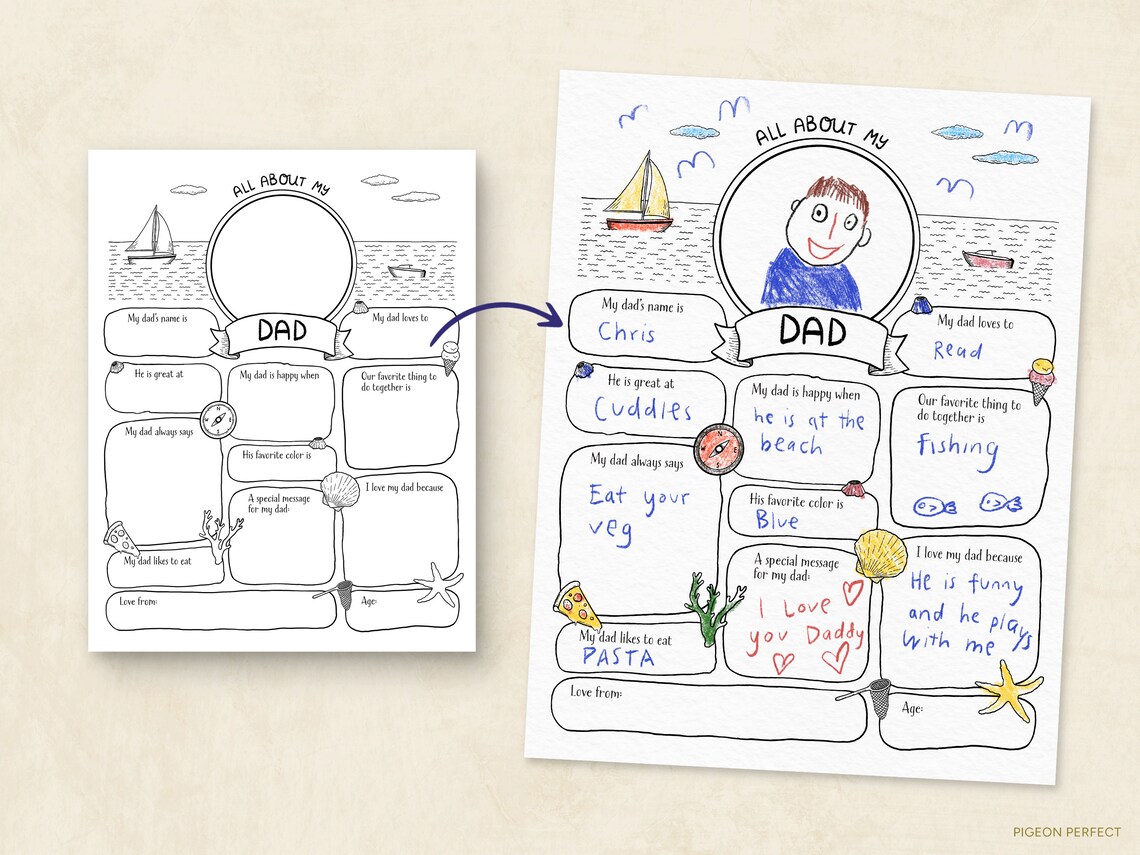 ALL ABOUT MY
DAD
My dad's name is
My dad loves to
He is great at
My dad is happy when
Our favorite thing to
do together is
My dad always says
N
E
S
W
His favorite color is
A special message
for my dad:
I love my dad because
My dad likes to eat
Love from:
Age:
ALL ABOUT MY
DAD
My dad's name is
Chris
My dad loves to
Read
He is great at
Cuddles
My dad is happy when
he is at the
beach
Our favorite thing to
do together is
Fishing
My dad always says
Eat your
veg
N
E
S
W
His favorite color is
Blue
A special message
for my dad:
I Love
you Daddy
I love my dad because
He is funny
and he plays
with me
My dad likes to eat
PASTA
Love from:
Age:
PIGEON PERFECT